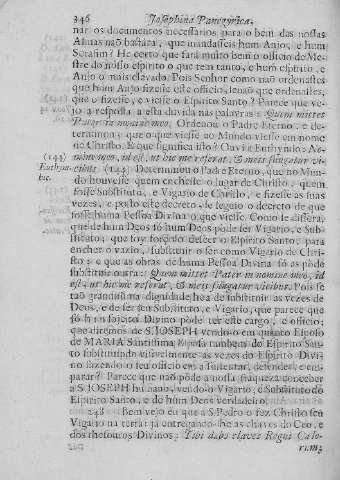 346 Josephina Panegyrica,
nar os documentos necessarios para o bem das nossas
Almas naõ bastára, que mandasseis hum Anjo, e hum
Serafim? He certo que fará muito bem o officio de Mes-
tre do nosso espirito o que tem tanto, e hum espirito, e
Anjo o mais elevado. Pois Senhor como naõ ordenastes
que hum Anjo fizesse este officio, senaõ que ordenastes,
que o fizesse, e viesse o Espirito Santo? Parece que ve-
jo a resposta a esta duvida nas palavras: Quem mittet
Pater in nomine meo, Ordenou o Padre Eterno, e de-
terminou; que o que viesse ao Mundo viesse em nome
de Christo. E que significa isto? Ouvi a Euthymio: No-
(144) mine meo, id est, ut hic me referat, & meis fungatur vi-
Euthym. cibus (144) Determinou o Padre Eterno, que no Mun-
hic. do houvesse quem enchesse o lugar de Christo, quem
fosse Substituto, e Vigario de Christo, e fizesse as suas
vezes, e posto este decreto, se seguio o decreto de que
fosse huma Pessoa Divina o que viesse. Como se dissera,
que de hum Deos só hum Deos póde ser Vigario, e Sub-
stituto; que foy forçado descer o Espirito Santo, para
encher o vazio, substituir o ser como Vigario de Chri-
sto; e que as obras de huma Pessoa Divina só as póde
substituir outra: Quem mittet Pater in nomine meo, id
est, ut hic me referat, & meis fungatur vicibus. Pois se
taõ grandiosa dignidade he a de substituir as vezes de
Deos, e de ser seu Substituto, e Vigario, que parece que
só hum sojeito Divino póde ter este cargo, e officio;
que diremos de S. JOSEPH vendo-o em quanto Esposo
de MARIA Santissima Esposa tambem do Espirito San-
to substituindo visivelmente as vezes do Espirito Divi-
no fazendo o seu officio em a sustentar, defender, e am-
parar? Parece que naõ póde a nossa fraqueza conceber
a S. JOSEPH humano, vendo-o Vigario, e Substituto do
Espirito Santo, e de hum Deos verdadeiro.
248 Bem vejo eu que a S. Pedro o fez Christo seu
Vigario na terra; já entregando-lhe as chaves do Ceo, e
dos thesouros Divinos: Tibi dabo claves Regni Cælo-
rum;